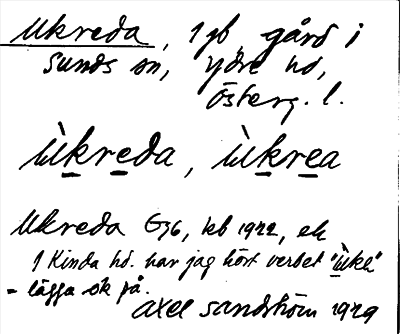 Ukreda, 1 gb, gård i
Sunds sn, Ydre hd,
Österg. l.
ùkreda, ùkrea
Ukreda G36, kb 1922, ek
I Kinda hd. har jag hört verbet "ùkk"
= lägga ok på.
Axel Sandström 1929